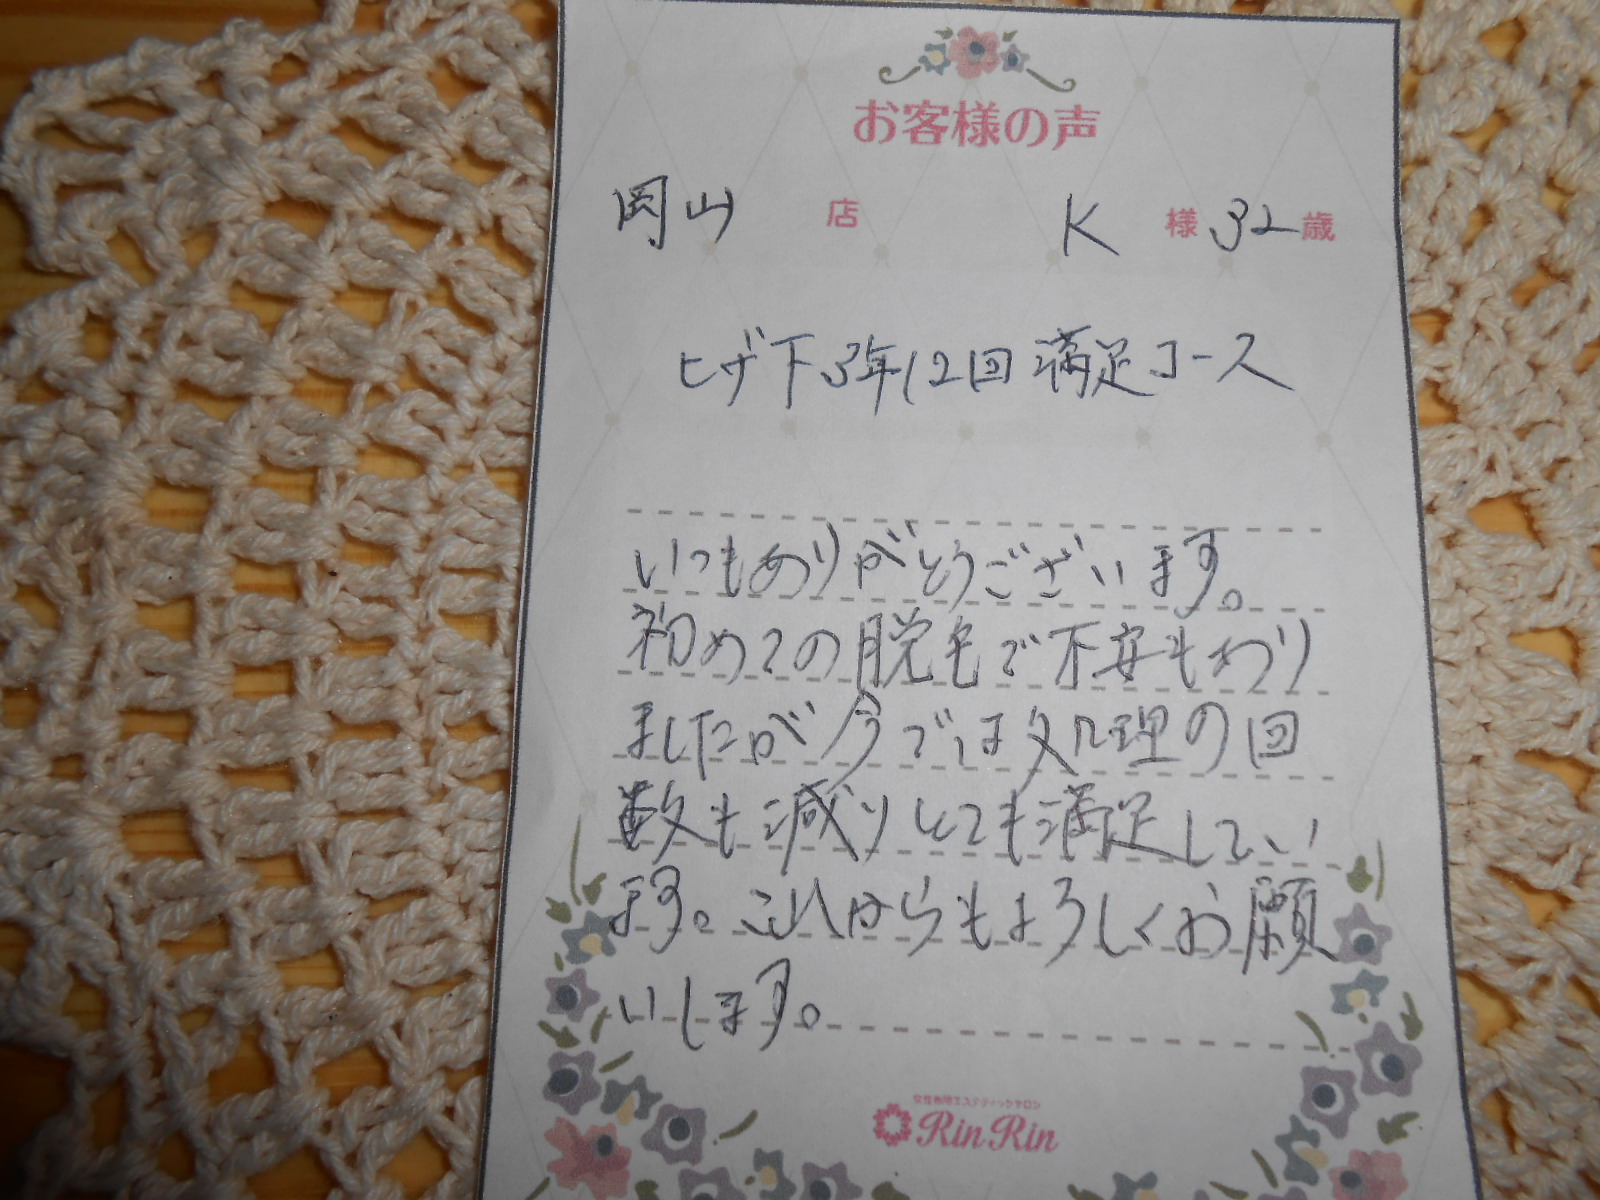 お客様の声
岡山 店 K 様 32 歳
ヒザ下3年12回満足コース
いつもありがとうございます。
初めての脱毛で不安もあり
ましたが今では処理の回
数も減りとても満足してい
ます。これからもよろしくお願
いします。
女性専用エステティックサロン
RinRin